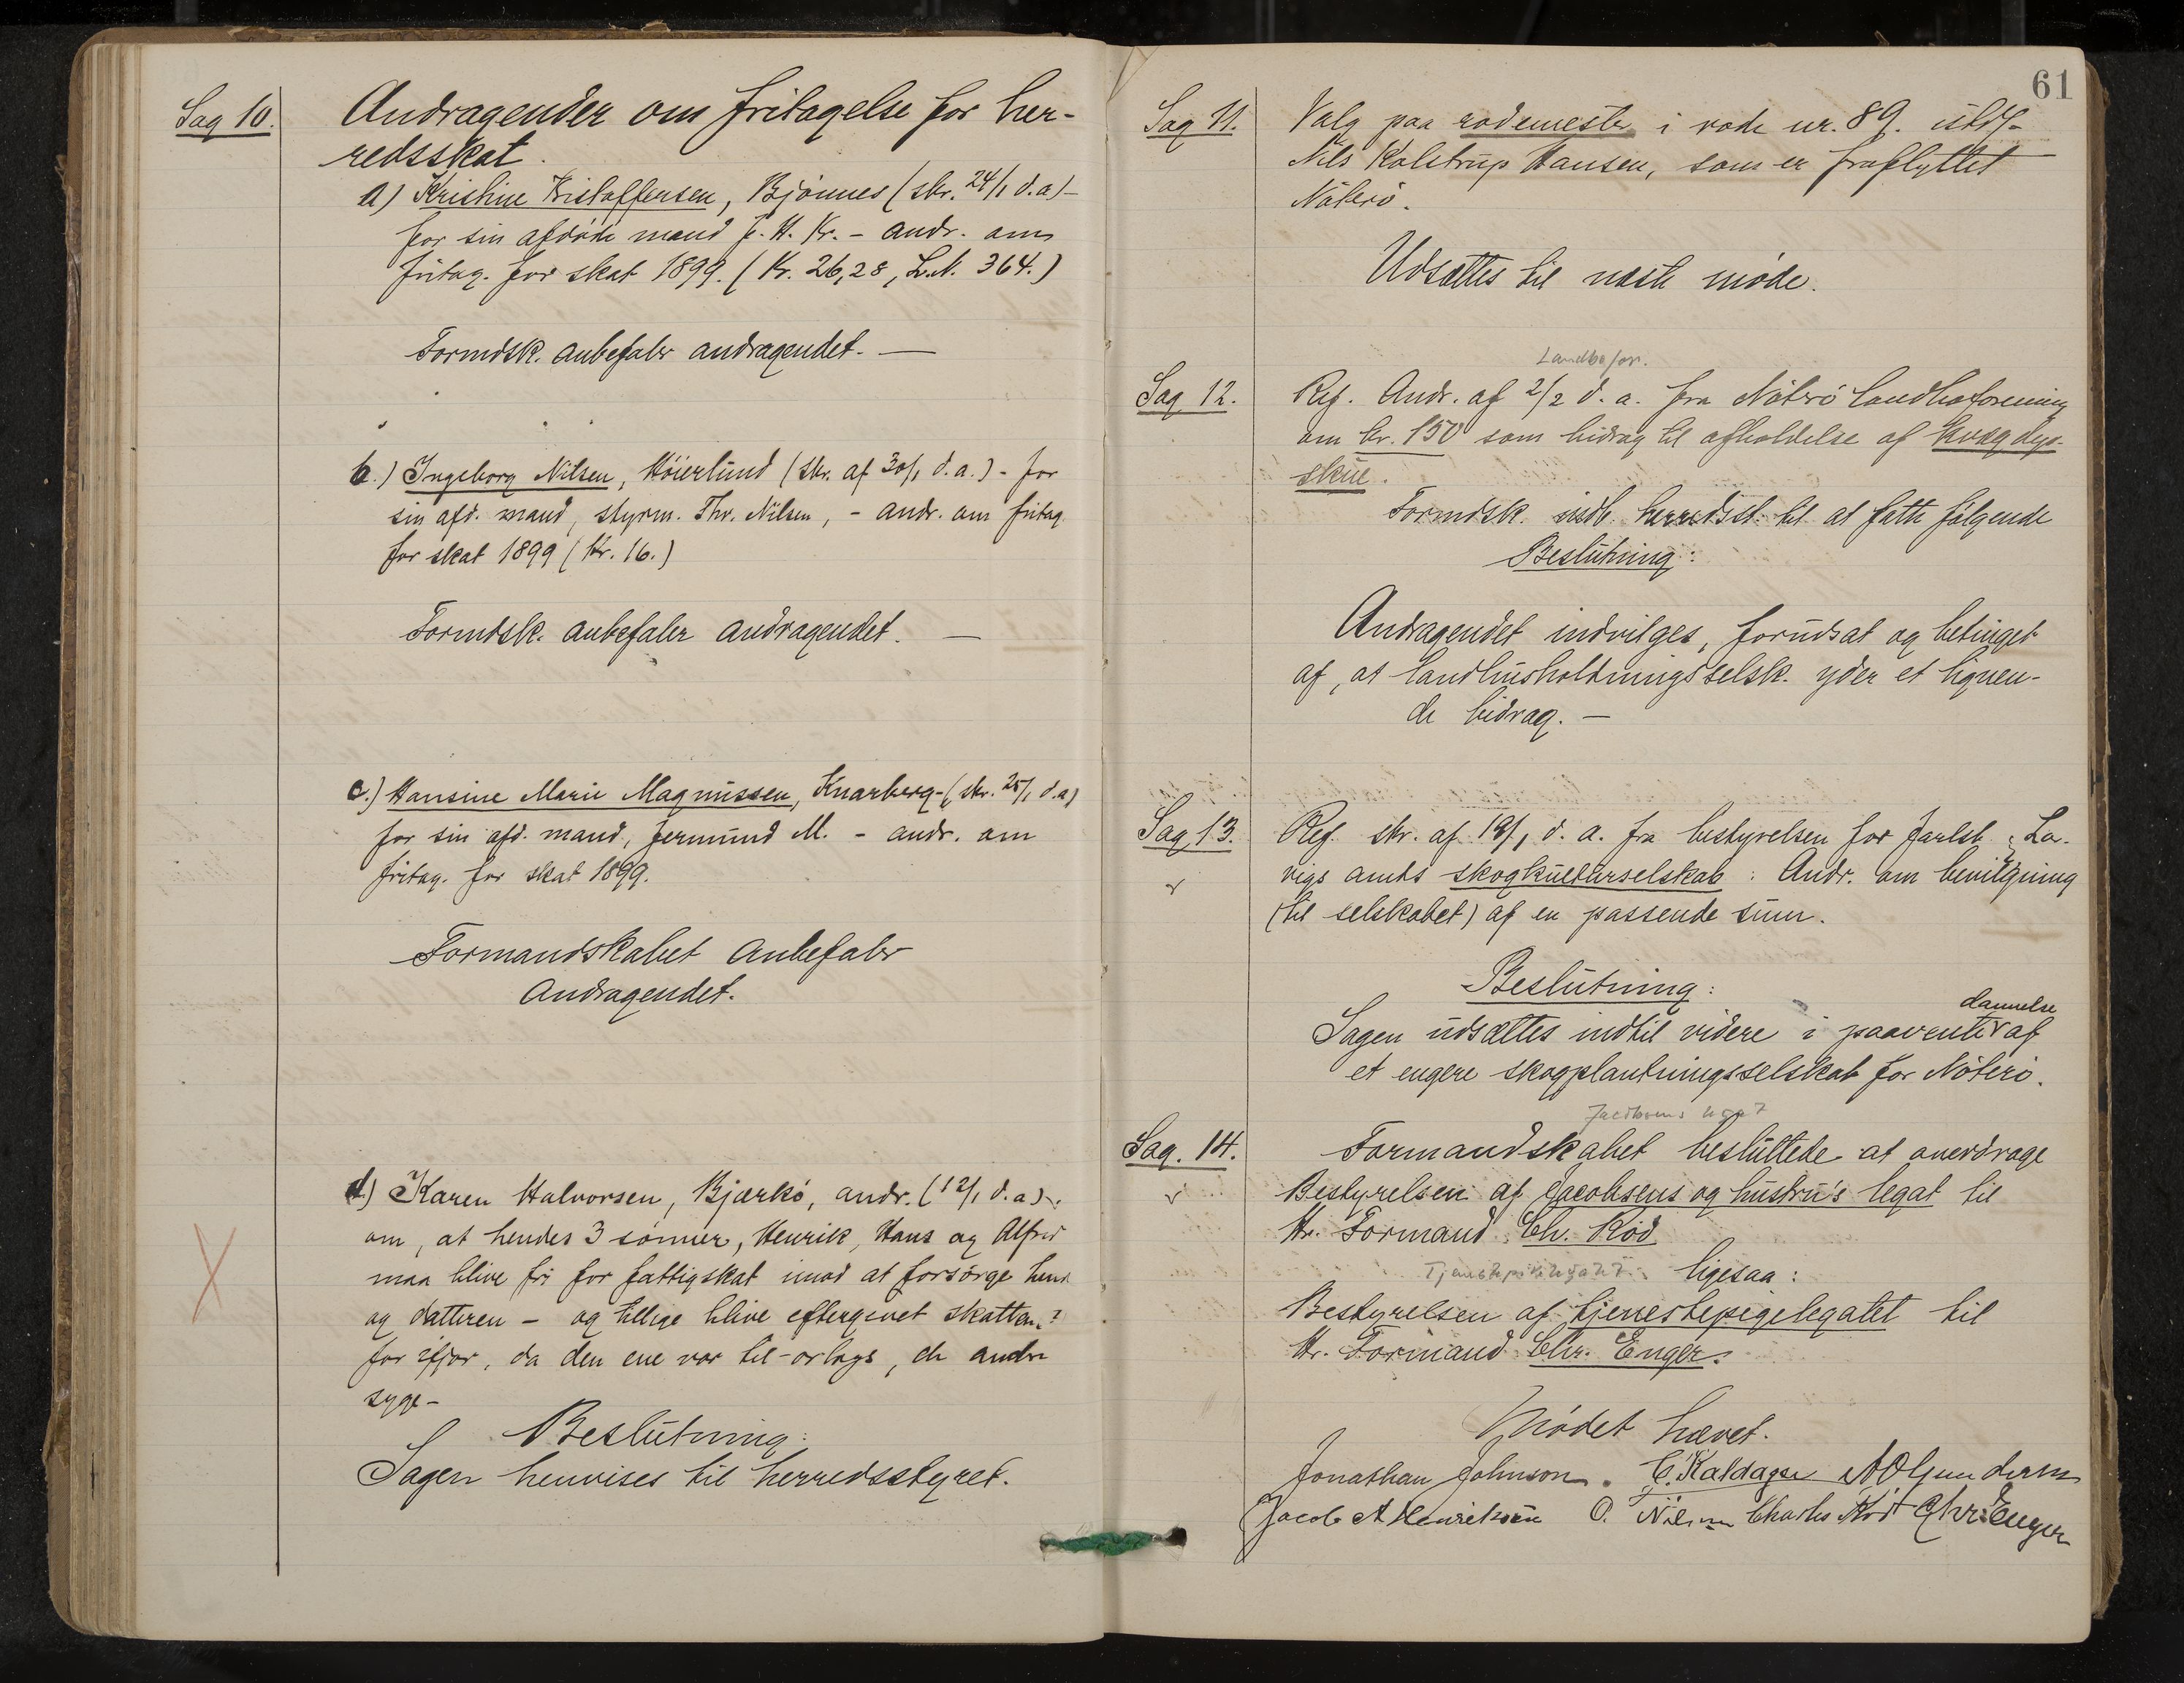 Sag 10.
Andragender om fritagelse for her-
redsskat.
a) Kristine Kristoffersen, Bjönnes (skr. 24/1 d.a) -
for sin afdöde mand J. H. Kr. - andr. om
fritag. for skat 1899. (Kr. 26,28, L.N. 364.)
Formdsk. anbefaler andragendet. —
b.) Ingeborg Nilsen, Höierlund (skr. af 30/1 d.a.) - for
sin afd. mand, styrm. Thv. Nilsen, - andr. om fritag.
for skat 1899 (Kr. 16.)
Formdsk. anbefaler andragendet. —
c.) Hansine Marie Magnussen, Knarberg - (skr. 25/1 d.a)
for sin afd. mand, Jermund M. - andr. om
fritag. for skat 1899.
Formandskabet anbefaler
andragendet.
d) Karen Halvorsen, Bjærkö, andr. (12/1 d.a).
om, at hendes 3 sönner, Henrik, Hans og Alfred
maa blive fri for fattigskat imod at forsörge hende
og datteren - og tillige blive eftergivet skatten
for ifjor, da den ene var til-orlogs, de andre
syge -
Beslutning:
Sagen henvises til herredsstyret.
61
Sag 11.
Valg paa rodemester i rode nr. 89. istdf.
Nils Kolstrup Hansen, som er fraflyttet
Nöterö.
Udsættes til næste möde.
Landbofor.
Sag 12.
Ref. Andr. af 2/2 d. a. fra Nöterö Landboforening
om kr. 150 som bidrag til afholdelse af kvægdyr-
skue.
Formdsk. indb. herredsst. til at fatte fölgende
Beslutning:
Andragendet indvilges, forudsat og betinget
af, at landhusholdningsselsk. yder et lignen-
de bidrag. —
Sag 13.
Ref. skr. af 19/1 d. a. fra bestyrelsen for Jarlsb. & La-
vigs amts skogkulturselskab: Andr. om bevilgning
(til selskabet) af en passende sum.
Beslutning:
dannelse
Sagen udsættes indtil videre i paavente af
et engere skogplantningsselskab for Nöterö.
Jacobsens legat
Sag. 14.
Formandskabet besluttede at overdrage
Bestyrelsen af Jacobsens og hustru's legat til
Hr. Formand Ch. Röd
ligesaa:
Bestyrelsen af tjenestepigelegatet til
Hr. Formand Chr. Enger.
Mödet hævet.
Jonathan Johnson. C. Kaldager A O Gundersen
Jacob A Henriksen O. Nilsen Charles Röd Chr. Enger